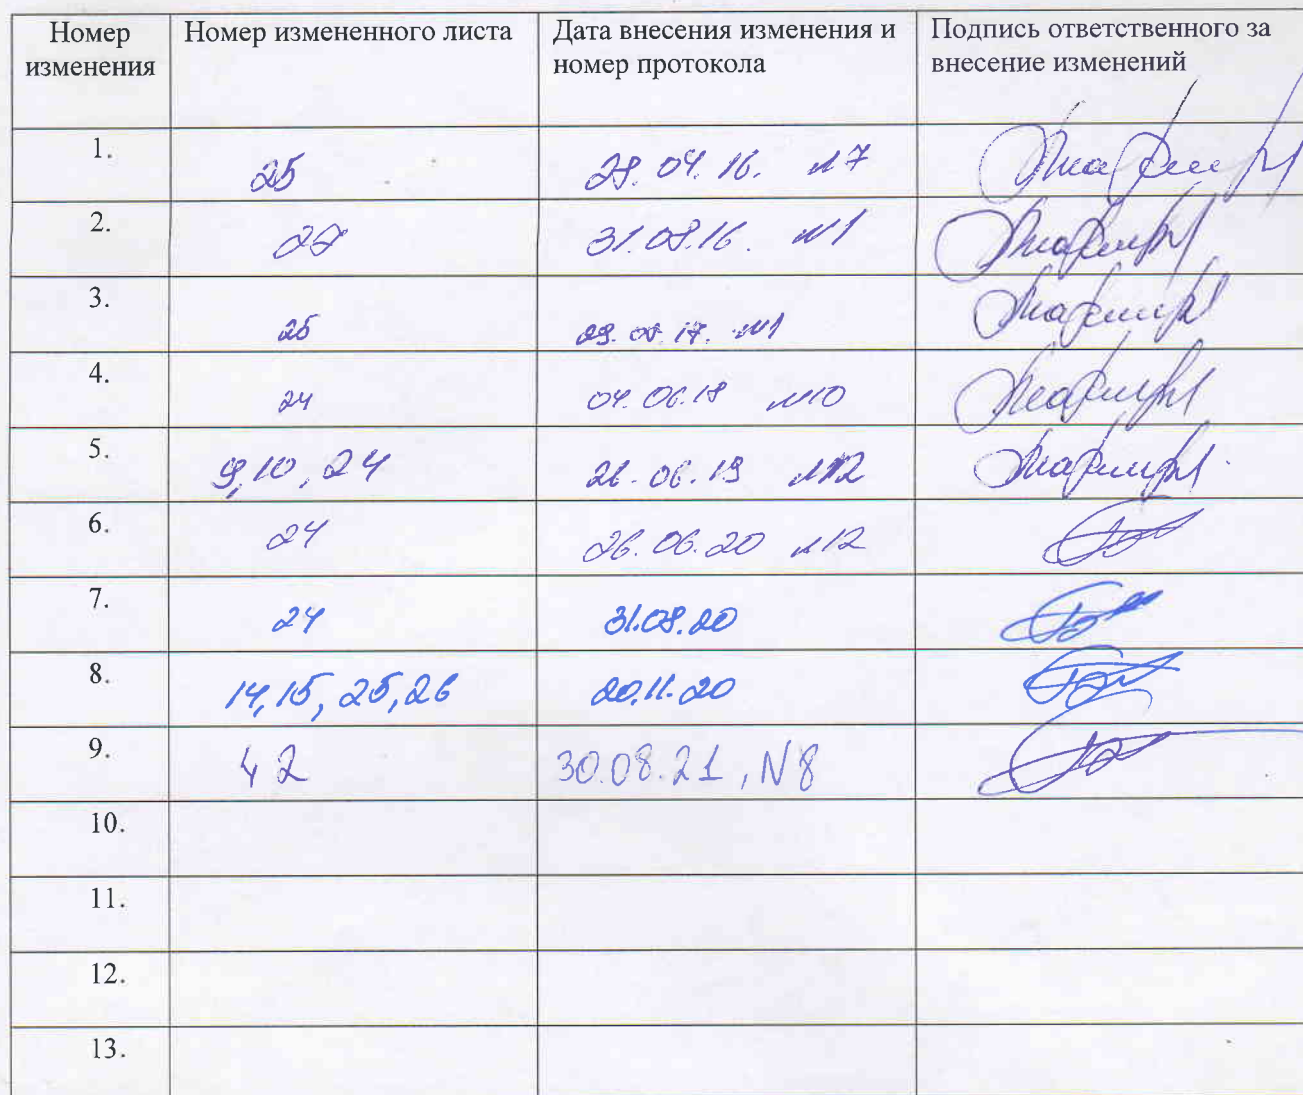 Номер изменения Номер измененного листа Дата внесения изменения и номер протокола Подпись ответственного за внесение изменений
1. 25 29.04.16. №7
2. 27 31.08.16. №1
3. 25 29.08.17. №1
4. 24 04.06.18 №10
5. 9,10,24 №12
6. 24 26.06.20 №12
7. 24 31.08.20
8. 14,15,25,26 20.11.20
9. 42 30.08.21, N8
10.
11.
12.
13.